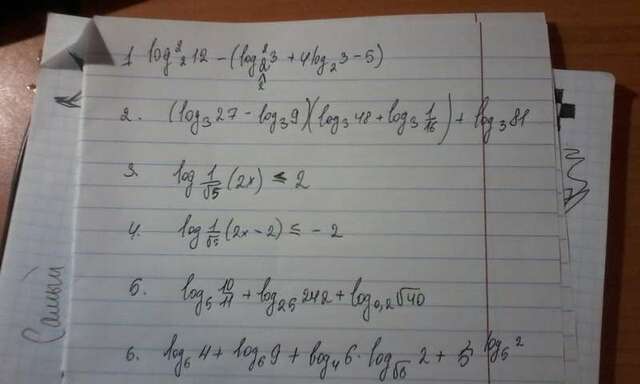 1. log²₂12 - (log²₂3 + 4log₂3 - 5)
2. (log₃27 - log₃9)(log₃48 + log₃ 1/16) + log₃81
3. log_{1/√5}(2x) ≤ 2
4. log_{1/√5}(2x - 2) ≤ -2
5. log₅ 10/11 + log₂₅242 + log₀,₂√40
6. log₆4 + log₆9 + log₄6 · log_{√6}2 + 5^{log₅2}
Самый